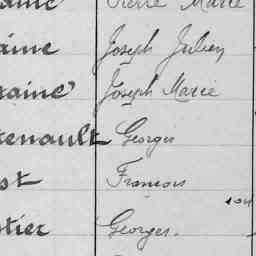 Pierre Marie
aine Joseph Julien
raine Joseph Marie
tenault Georges
st François
tier Georges.